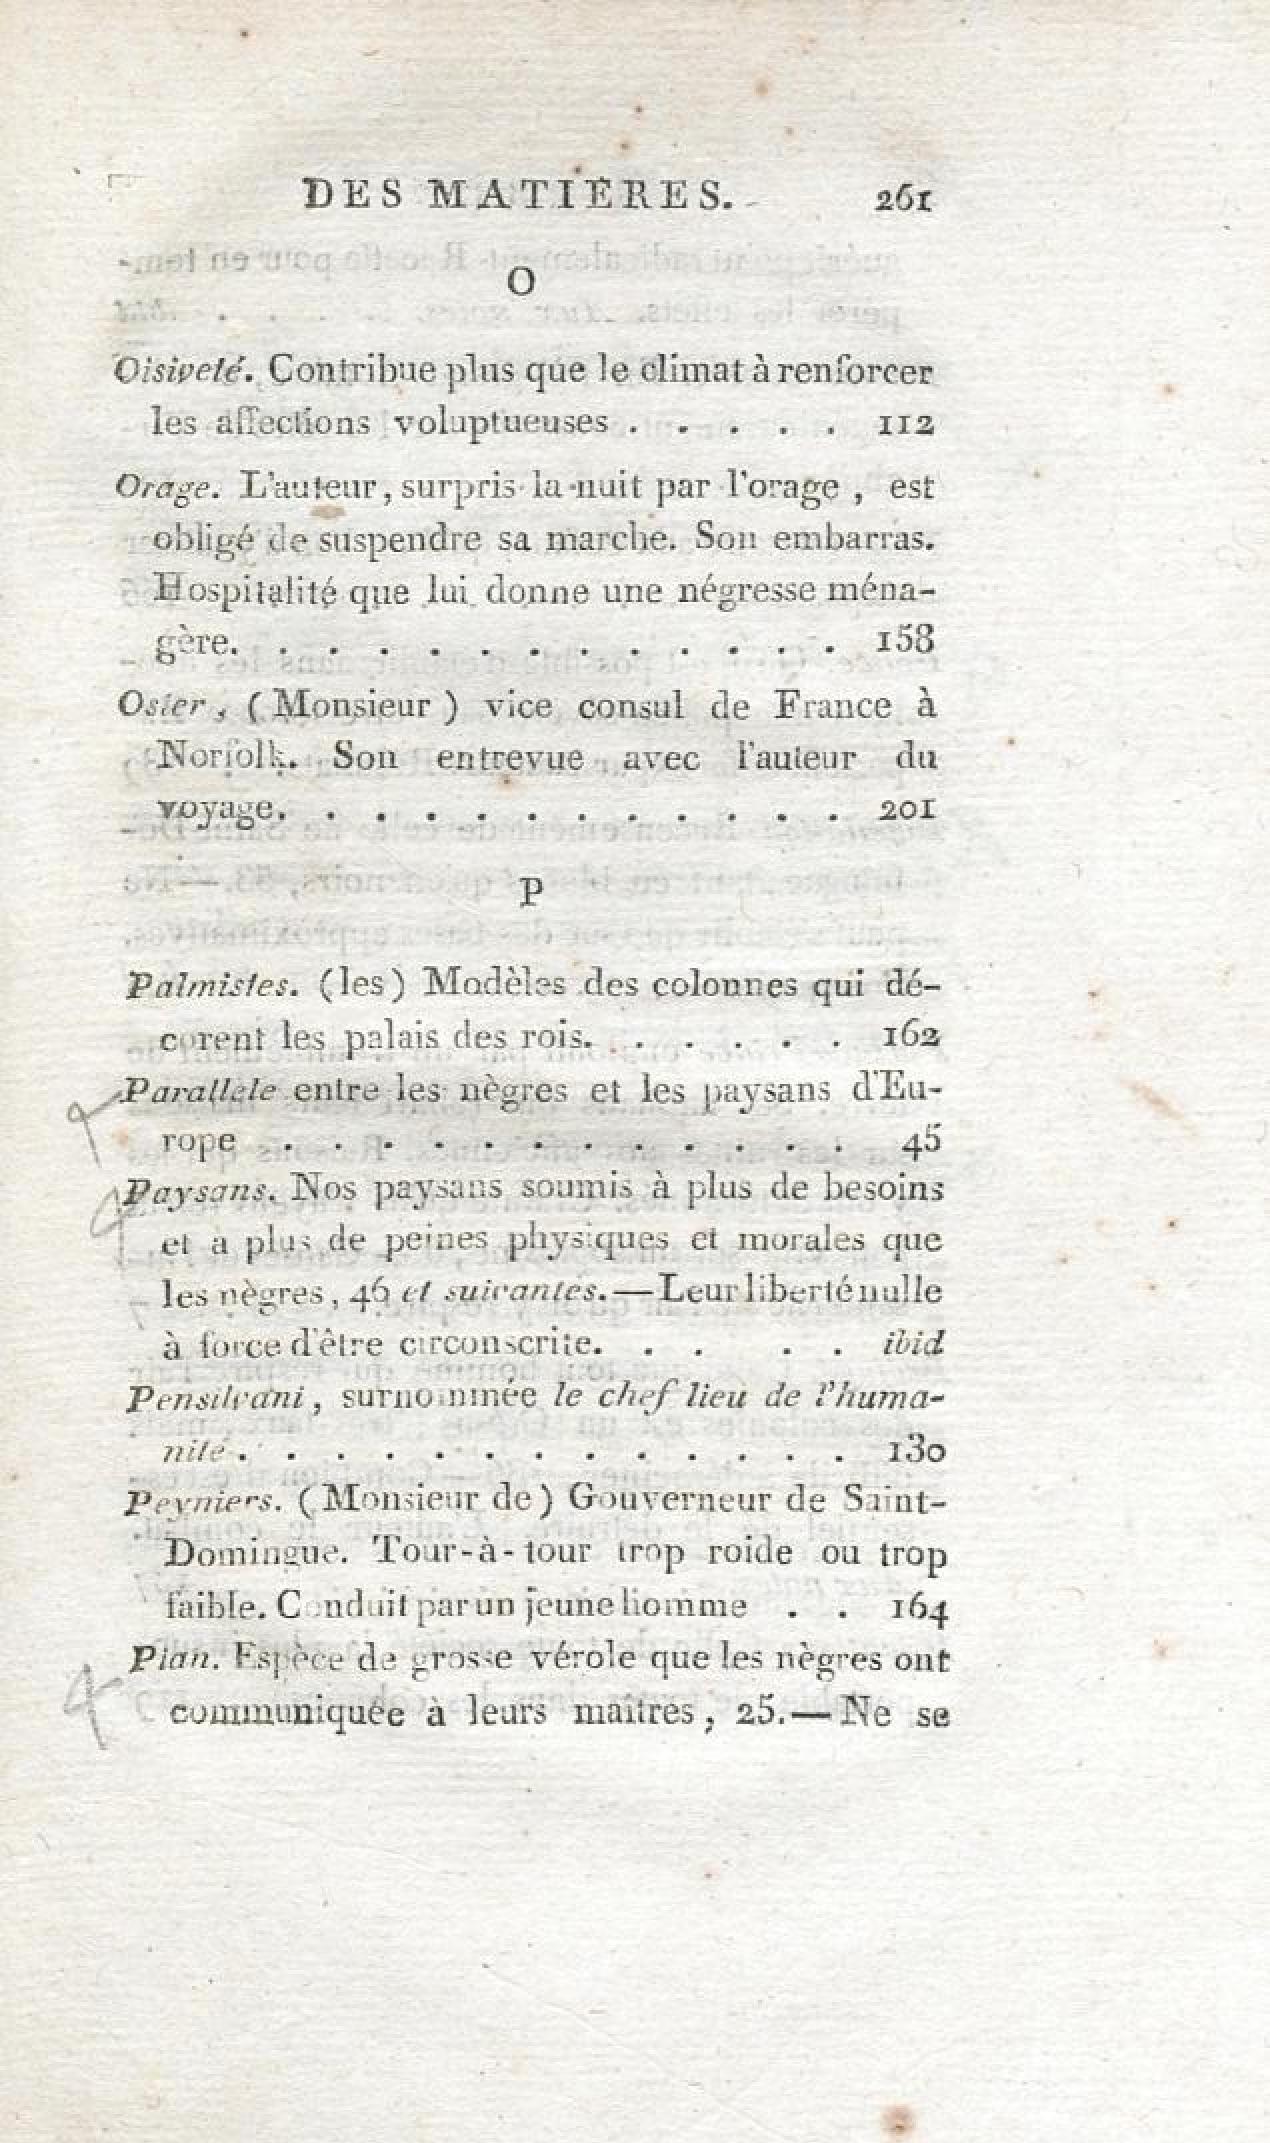 DES MATIÈRES. 261
O
Oisiveté. Contribue plus que le climat à renforcer
les affections voluptueuses . . . . . 112
Orage. L'auteur, surpris la nuit par l'orage, est
obligé de suspendre sa marche. Son embarras.
Hospitalité que lui donne une négresse ména-
gère. . . . . . . . . . . . . 158
Oster, (Monsieur) vice consul de France à
Norfolk. Son entrevue avec l'auteur du
voyage. . . . . . . . . . . . 201
P
Palmistes. (les) Modèles des colonnes qui dé-
corent les palais des rois. . . . . . 162
Parallèle entre les nègres et les paysans d'Eu-
rope . . . . . . . . . . . . 45
Paysans. Nos paysans soumis à plus de besoins
et a plus de peines physiques et morales que
les nègres, 46 et suivantes.—Leur liberté nulle
à force d'être circonscrite. . . . . ibid
Pensilvani, surnommée le chef lieu de l'huma-
nité . . . . . . . . . . . . . 130
Peyniers. (Monsieur de) Gouverneur de Saint-
Domingue. Tour-à-tour trop roide ou trop
faible. Conduit par un jeune homme . . 164
Pian. Espèce de grosse vérole que les nègres ont
communiquée à leurs maîtres, 25.— Ne se